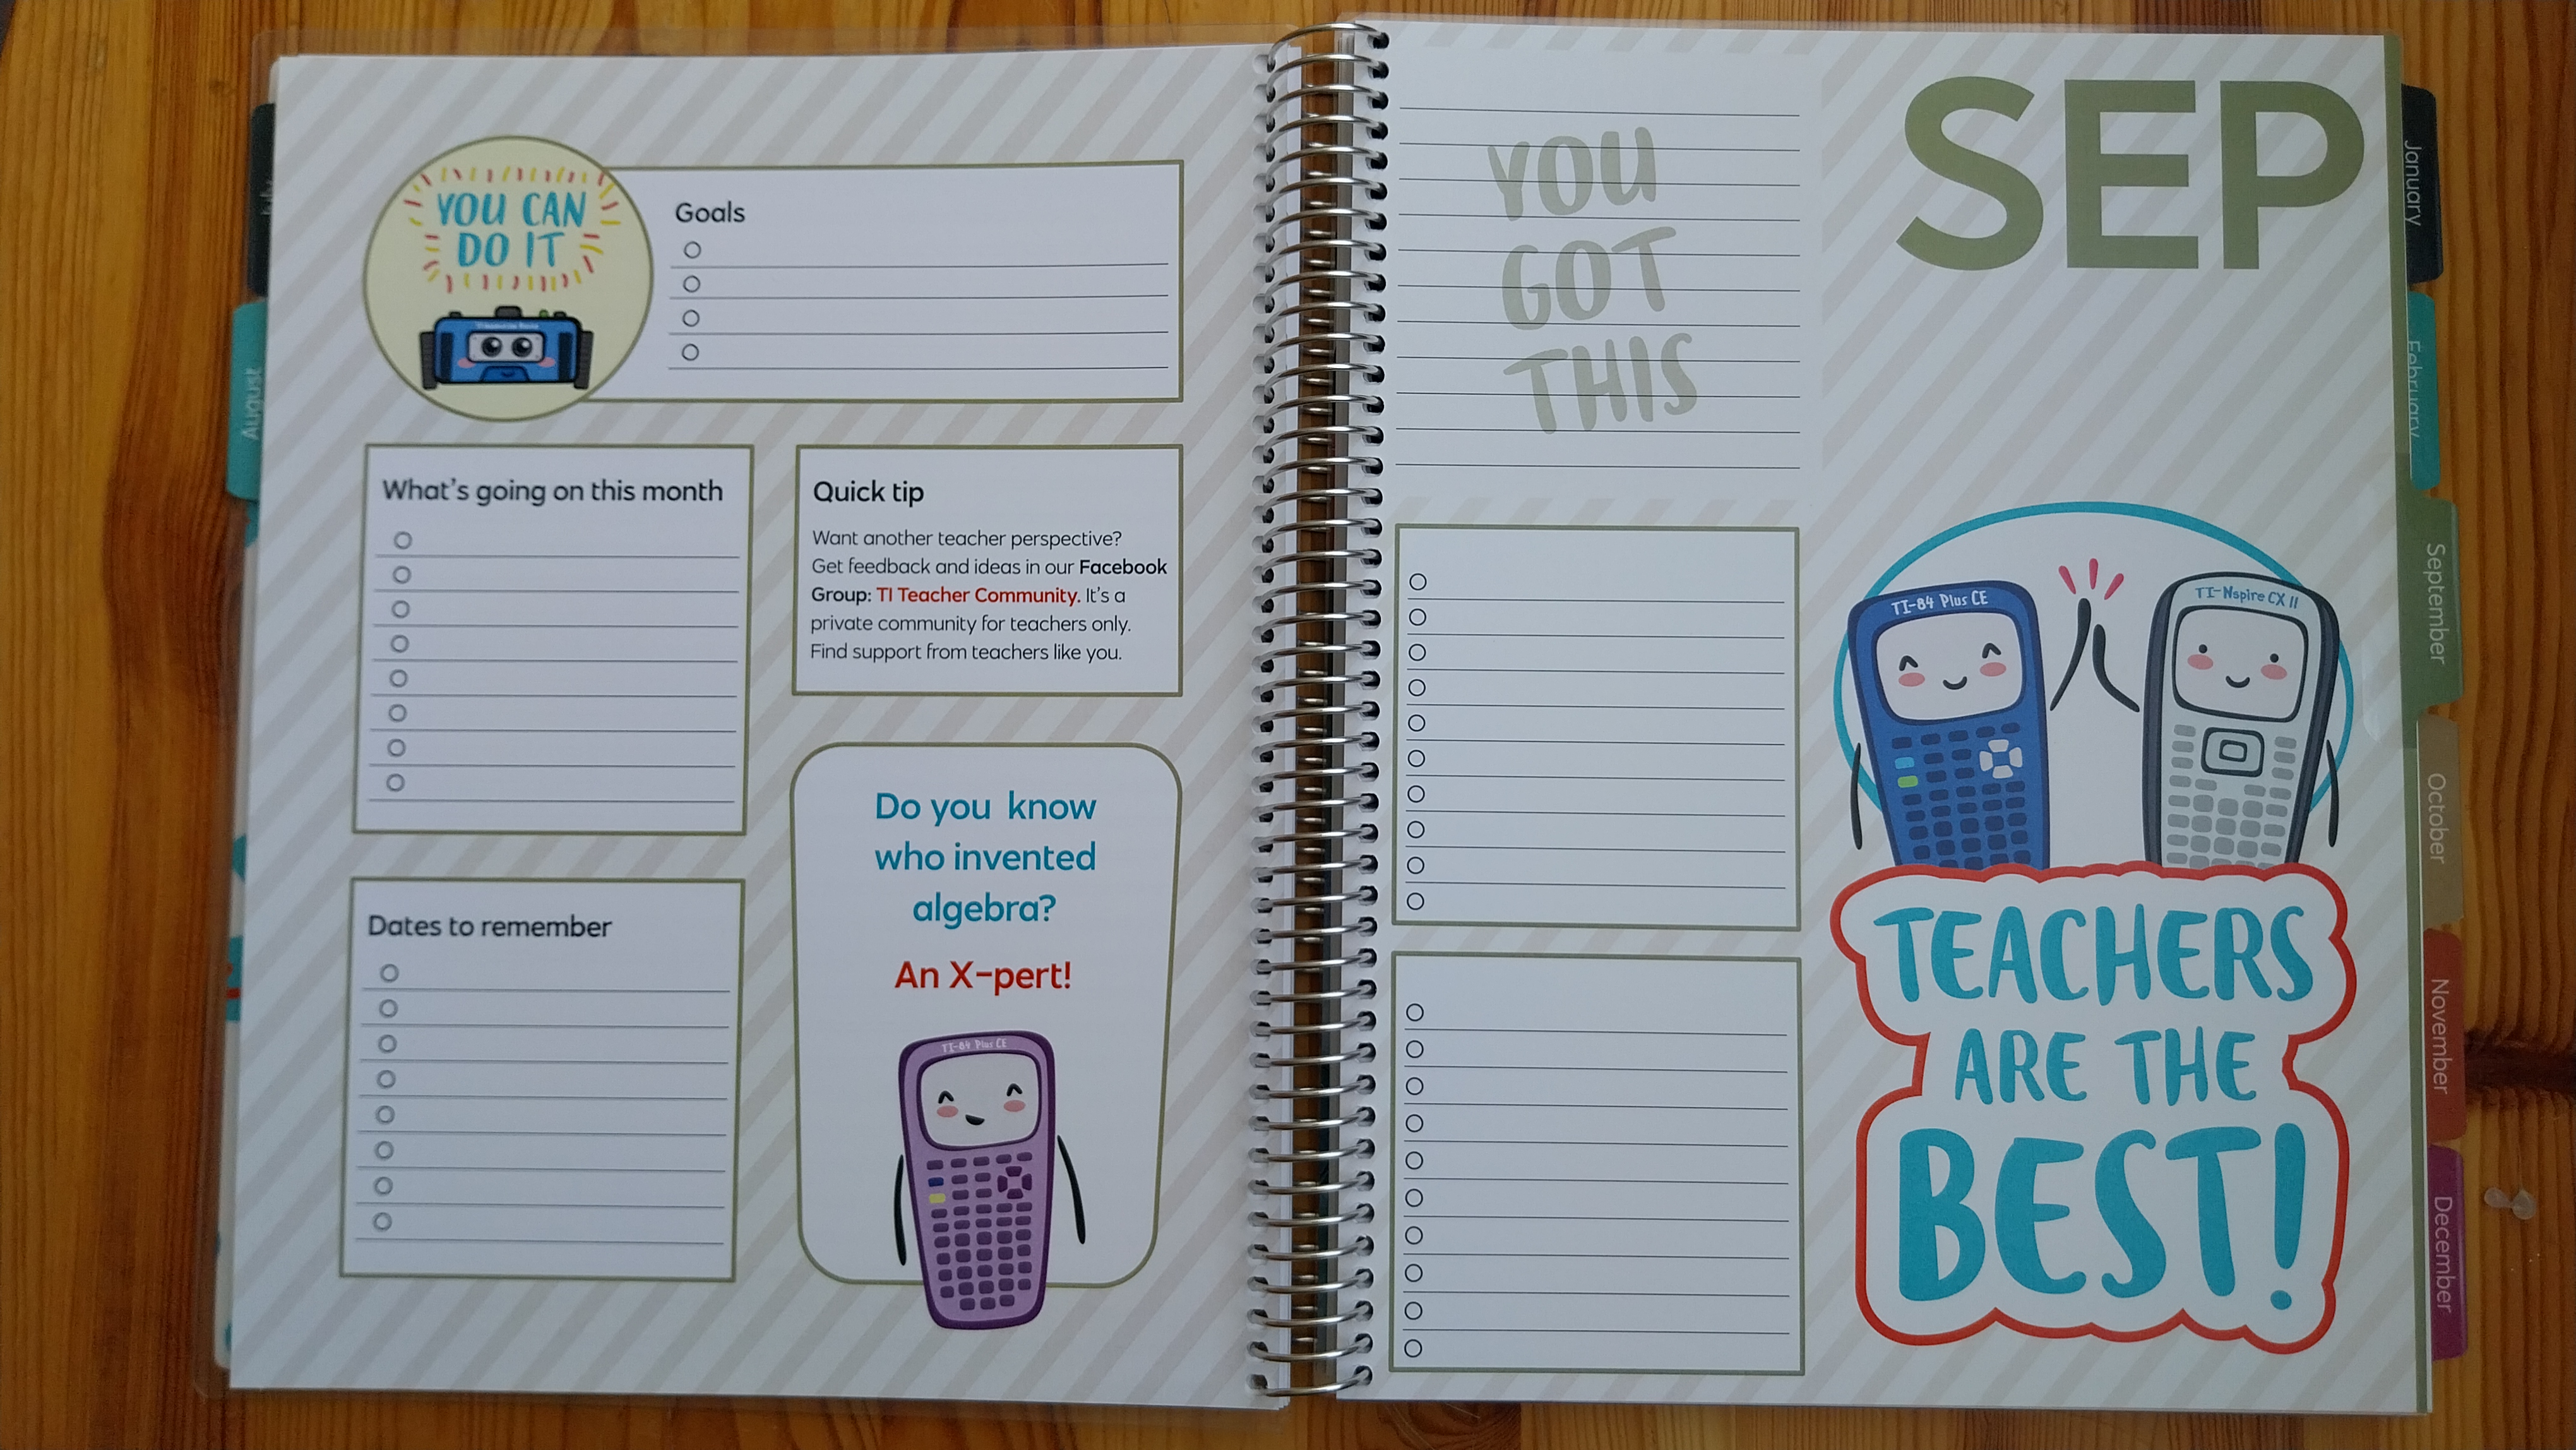 YOU CAN
DO IT
Goals
What's going on this month
Quick tip
Want another teacher perspective?
Get feedback and ideas in our Facebook
Group: TI Teacher Community. It's a
private community for teachers only.
Find support from teachers like you.
Do you know
who invented
algebra?
An X-pert!
TI-84 Plus CE
Dates to remember
August
YOU
GOT
THIS
SEP
TI-84 Plus CE
TI-Nspire CX II
TEACHERS
ARE THE
BEST!
January
February
September
October
November
December